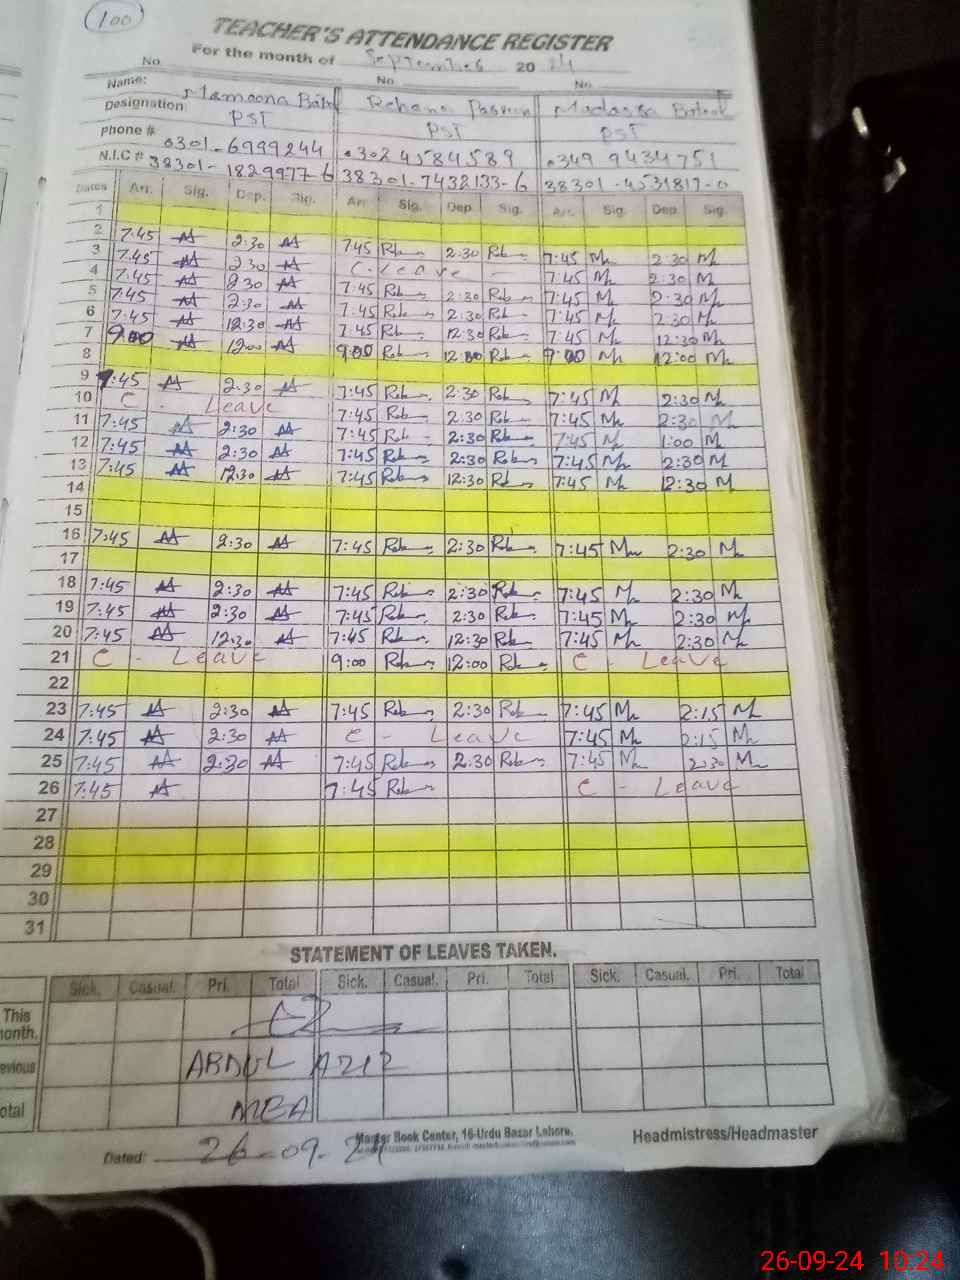 100
TEACHER'S ATTENDANCE REGISTER
For the month of September 20 24
No. No. No.
Name: Mamoona Rehana
Designation PST PST PST
Phone # 0301-6999244 0302 4584589 0349 9434751
N.I.C # 38301-1829977-6 38301-7432133-6 38301-4531817-0
Dates Arr. Sig. Dep. Sig. Arr. Sig. Dep. Sig. Arr. Sig. Dep. Sig.
1
2 7.45 2:30 7:45 Reb 2.30 Reb 7:45 M 2:30 M
3 7.45 2:30 C. Leave - 7:45 M 2:30 M
4 7.45 2:30 7:45 Reb 2:30 Reb 7:45 M 2:30 M
5 7.45 2:30 7:45 Reb 2:30 Reb 7:45 M 2:30 M
6 7.45 12:30 7:45 Reb 12:30 Reb 7:45 M 12:30 M
7 9.00 12:00 9:00 Reb 12:00 Reb 9:00 M 12:00 M
8
9 7:45 2:30 7:45 Reb 2:30 Reb 7:45 M 2:30 M
10 C - Leave 7:45 Reb 2:30 Reb 7:45 M 2:30 M
11 7:45 2:30 7:45 Reb 2:30 Reb 7:45 M 1:00 M
12 7:45 2:30 7:45 Reb 2:30 Reb 7:45 M 2:30 M
13 7:45 12:30 7:45 Reb 12:30 Reb 7:45 M 12:30 M
14
15
16 7:45 2:30 7:45 Reb 2:30 Reb 7:45 M 2:30 M
17
18 7:45 2:30 7:45 Reb 2:30 Reb 7:45 M 2:30 M
19 7:45 2:30 7:45 Reb 2:30 Reb 7:45 M 2:30 M
20 7:45 12:30 7:45 Reb 12:30 Reb 7:45 M 2:30 M
21 C - Leave 9:00 Reb 12:00 Reb C - Leave
22
23 7:45 2:30 7:45 Reb 2:30 Reb 7:45 M 2:15 M
24 7:45 2:30 C - Leave 7:45 M 2:15 M
25 7:45 2:30 7:45 Reb 2.30 Reb 7:45 M 2:30 M
26 7:45 7:45 Reb C - Leave
27
28
29
30
31
STATEMENT OF LEAVES TAKEN.
Sick. Casual. Pri. Total Sick. Casual. Pri. Total Sick. Casual. Pri. Total
This month.
evious ABDUL AZIZ
otal MEA
Master Book Center, 16-Urdu Bazar Lahore.
Headmistress/Headmaster
Dated: 26-09-24
26-09-24 10:24